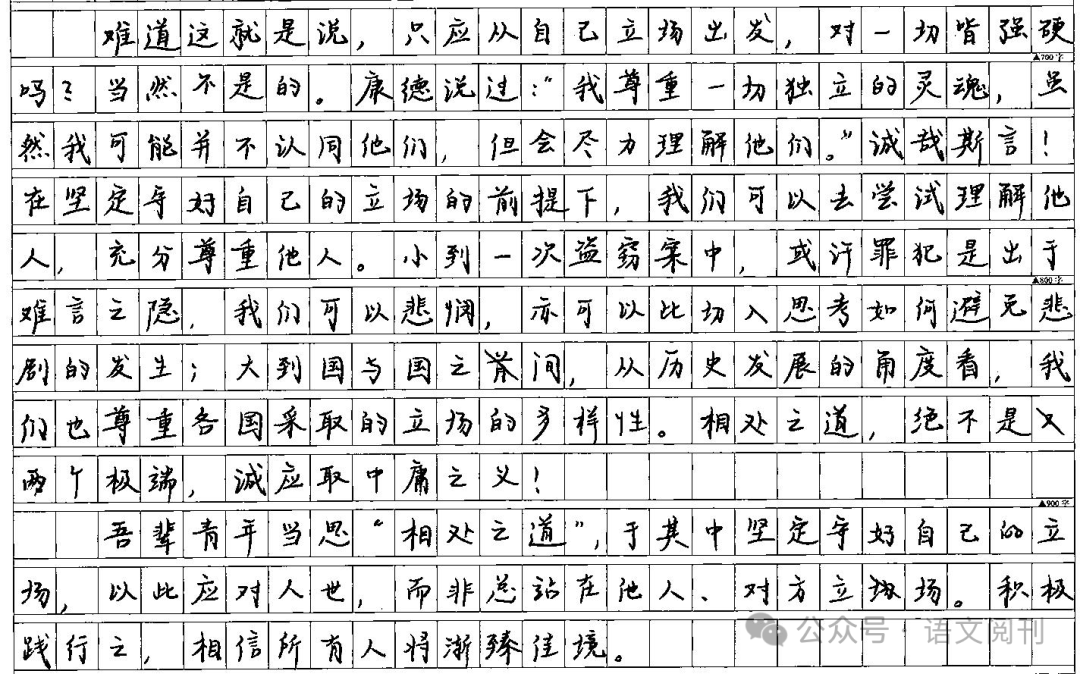 难道这就是说，只应从自己立场出发，对一切皆强硬
▲700字
吗？当然不是的。康德说过：“我尊重一切独立的灵魂，虽
然我可能并不认同他们，但会尽力理解他们。”诚哉斯言！
在坚定守好自己的立场的前提下，我们可以去尝试理解他
人，充分尊重他人。小到一次盗窃案中，或许罪犯是出于
▲800字
难言之隐，我们可以悲悯，亦可以比切入思考如何避免悲
剧的发生；大到国与国之间，从历史发展的角度看，我
们也尊重各国采取的立场的多样性。相处之道，绝不是
两个极端，诚应取中庸之义！
▲900字
吾辈青年当思“相处之道”，于其中坚定守好自己的立
场，以此应对人世，而非总站在他人、对方立场。积极
践行之，相信所有人将渐臻佳境。
公众号·语文阅刊